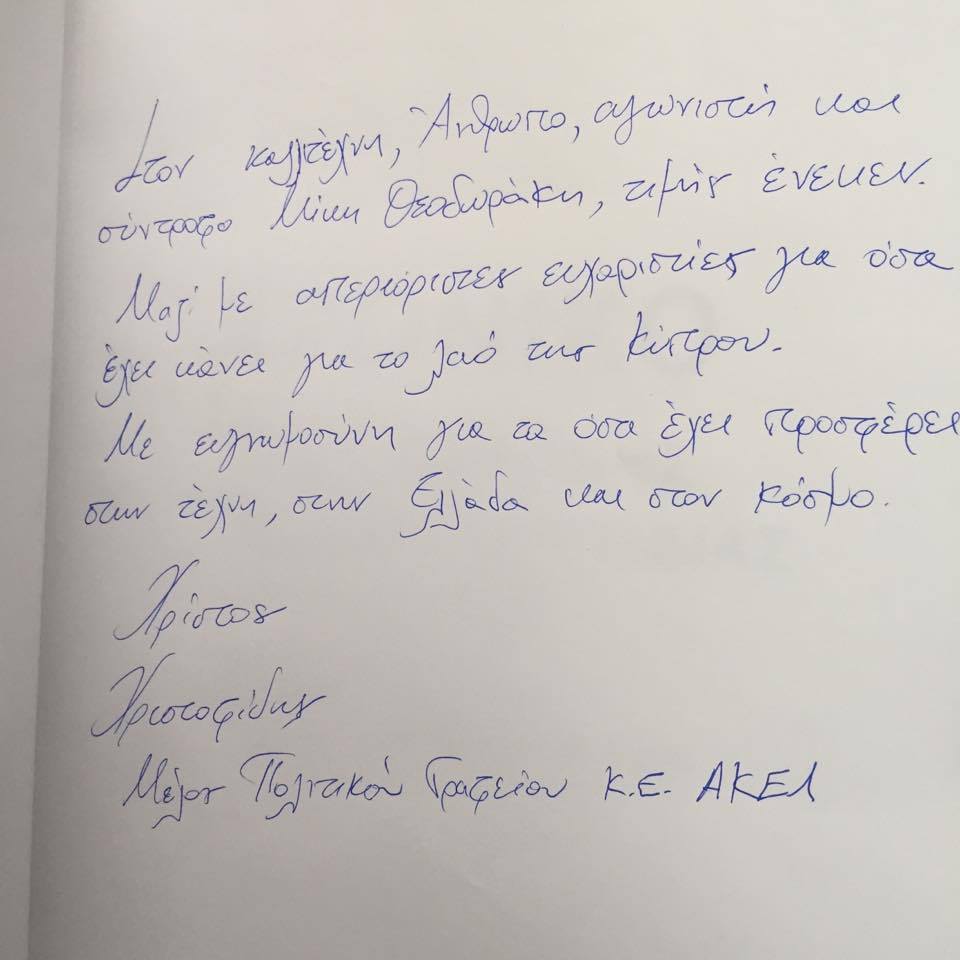 Στον καλλιτέχνη, Άνθρωπο, αγωνιστή και
σύντροφο Μίκη Θεοδωράκη, τιμής ένεκεν.
Μαζί με απεριόριστες ευχαριστίες για όσα
έχει κάνει για το λαό της Κύπρου.
Με ευγνωμοσύνη για τα όσα έχει προσφέρει
στην τέχνη, στην Ελλάδα και στον κόσμο.
Χρίστος
Χριστοφίδης
Μέλος Πολιτικού Γραφείου Κ.Ε. ΑΚΕΛ